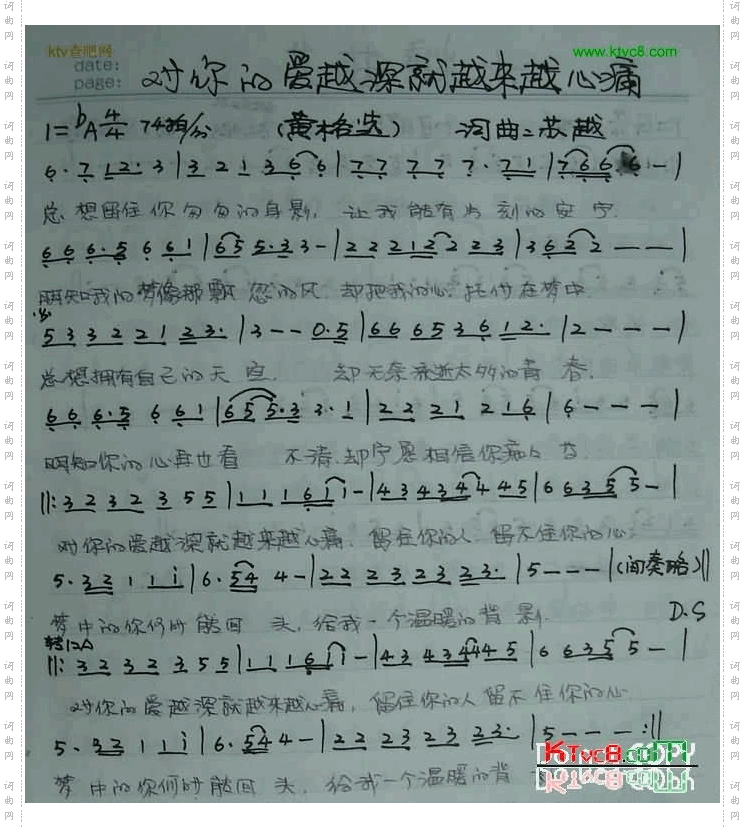 ktv查吧网
www.ktvc8.com
date:
page: 对你的爱越深就越来越心痛
1=bA 4/4 74拍/分 (黄格选) 词曲:苏越
6·7 12·3|3 2 1 3 6 6|7 7 7 7 7·7 1|7 6 6 6 -|
总想留住你匆匆的身影, 让我能有片刻的安宁.
6 6 6·5 6 6 1|6 5 5·3 3 -|2 2 2 1 2 2 2 3|3 6 2 2 - - -|
明知我的梦像那飘忽的风 却把我的心托付在梦中
5 3 3 2 2 1 2 3·|3 - - 0·5|6 6 6 5 3 6 1 2·|2 - - -|
总想拥有自己的天空. 却无奈流逝太多的青春.
6 6 6·5 6 6 1|6 5 5·3 3·1|2 2 2 1 2 1 6|6 - - -|
明知你的心再也看不清.却宁愿相信你
||:3 2 3 2 3 5 5|1 1 1 6 1 1 -|4 3 4 3 4 4 4 5|6 6 3 5 5 -|
对你的爱越深就越来越心痛. 留住你的人.留不住你的心.
5·3 2 1 1 i|6·5 4 4 -|2 2 2 3 2 3 2 3·|5 - - -|(间奏略)||
梦中的你何时能回头.给我一个温暖的背影. D.S
转1=A
||:3 2 3 2 3 5 5|1 1 1 6 1 1 -|4 3 4 3 4 4 4 5|6 6 3 5 5 -|
对你的爱越深就越来越心痛, 留住你的人留不住你的心
5·3 2 1 1 i|6·5 4 4 -|2 2 2 3 2 3 2 3·|5 - - -:||
梦中的你何时能回头, 给我一个温暖的背
KTvc8.com COPY
词曲网